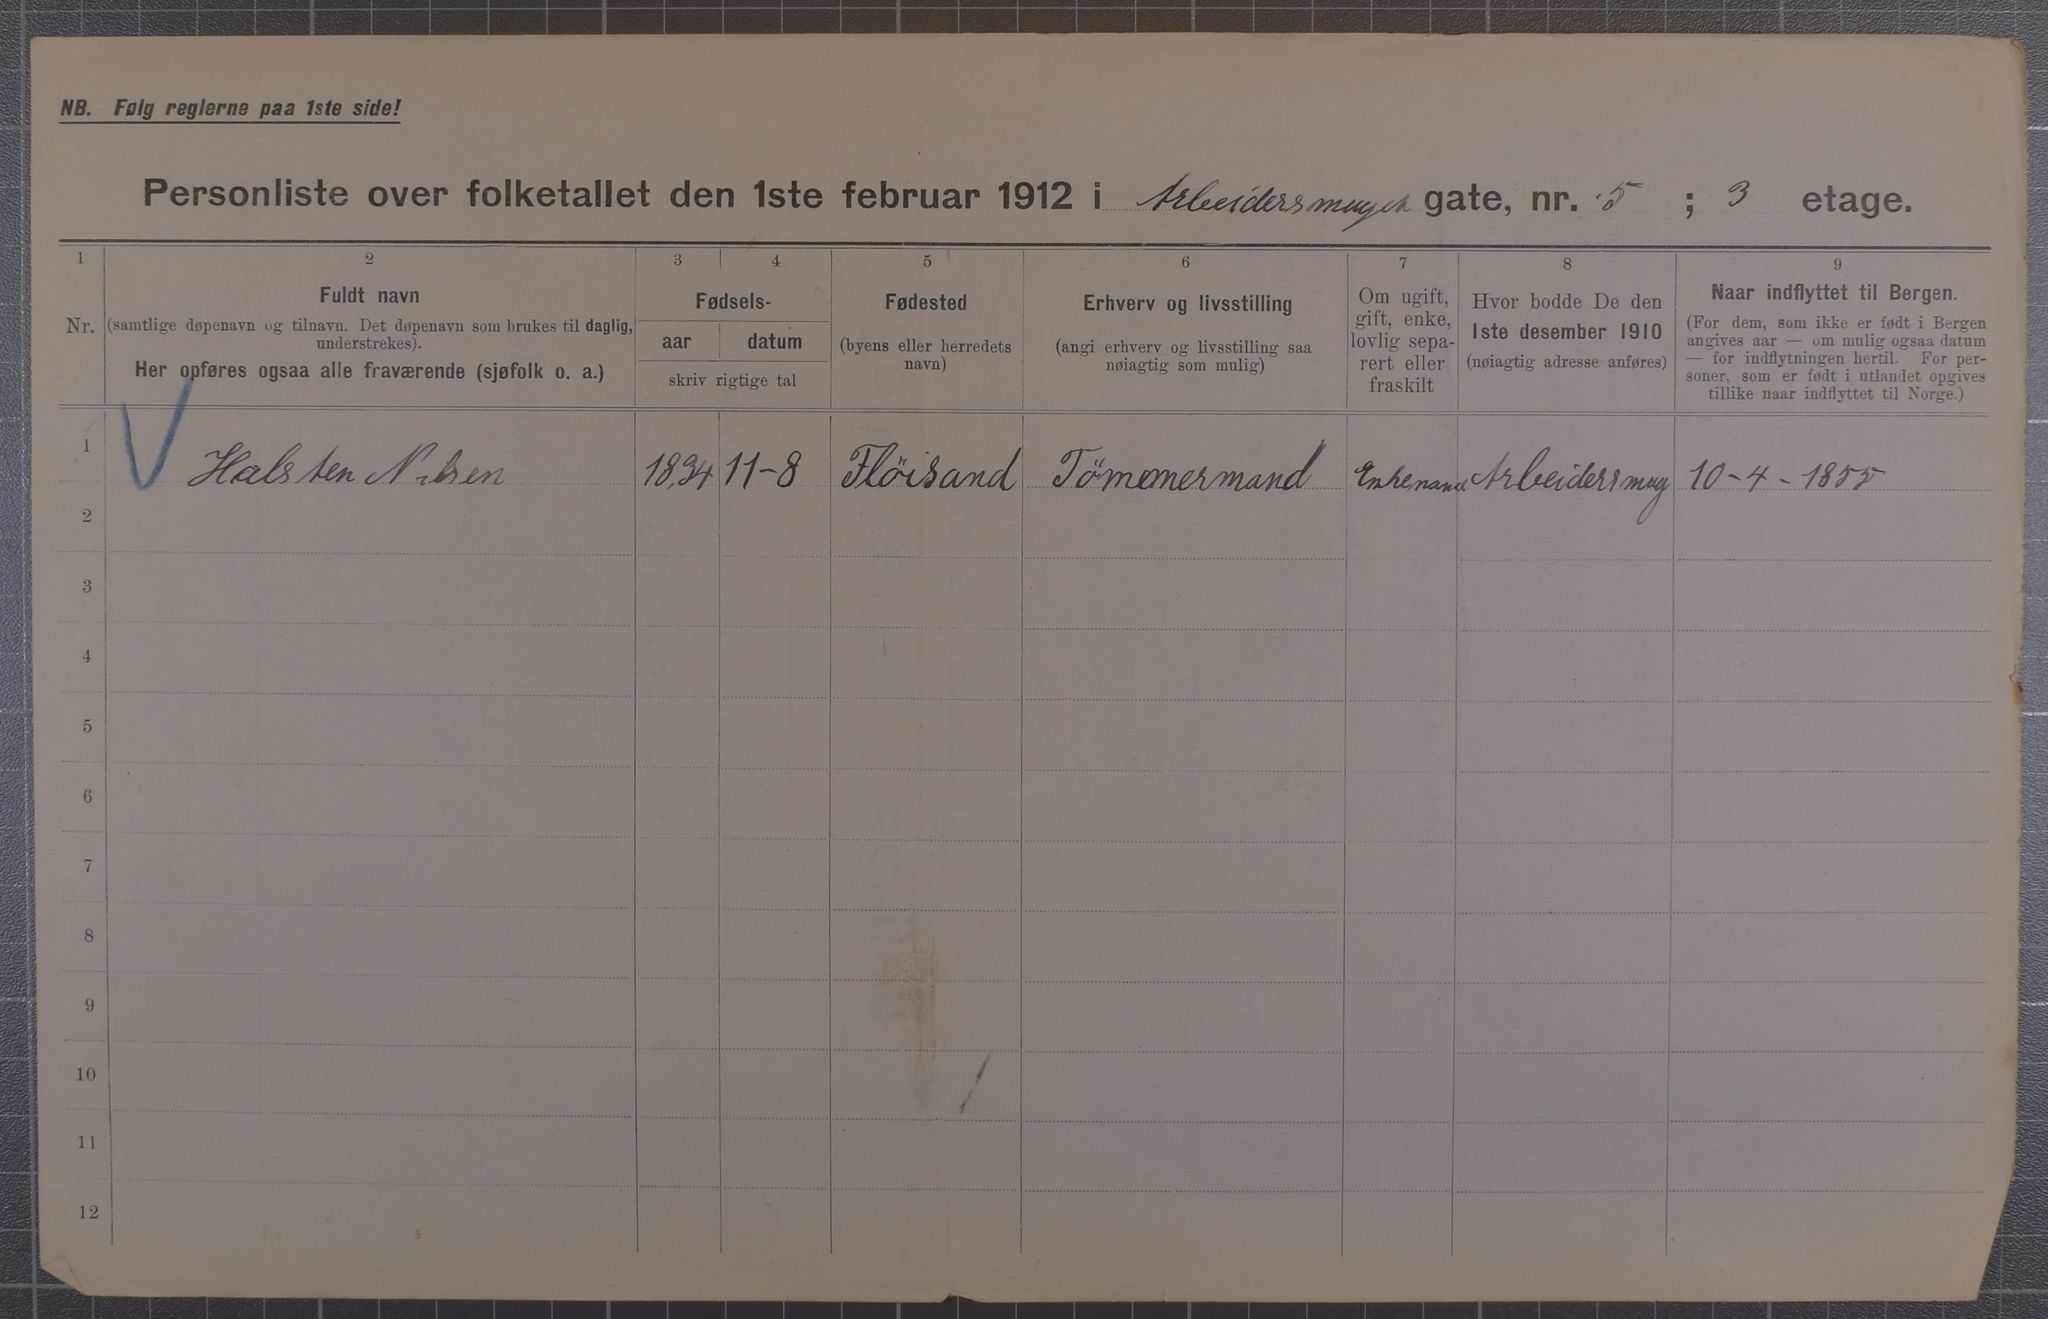 NB. Følg reglerne paa 1ste side!
Personliste over folketallet den 1ste februar 1912 i Arbeidersmuget gate, nr. 5 ; 3 etage.
1 2 3 4 5 6 7 8 9
Nr.
Fuldt navn
(samtlige døpenavn og tilnavn. Det døpenavn som brukes til daglig,
understrekes).
Her opføres ogsaa alle fraværende (sjøfolk o. a.)
Fødsels-
aar datum
skriv rigtige tal
Fødested
(byens eller herredets
navn)
Erhverv og livsstilling
(angi erhverv og livsstilling saa
nøiagtig som mulig)
Om ugift,
gift, enke,
lovlig sepa-
rert eller
fraskilt
Hvor bodde De den
1ste desember 1910
(nøiagtig adresse anføres)
Naar indflyttet til Bergen.
(For dem, som ikke er født i Bergen
angives aar — om mulig ogsaa datum
— for indflytningen hertil. For per-
soner, som er født i utlandet opgives
tillike naar indflyttet til Norge.)
1 Halsten Nilsen 1834 11-8 Flöisand Tömemermand Enkemand Arbeidersmug 10-4-1855
2
3
4
5
6
7
8
9
10
11
12